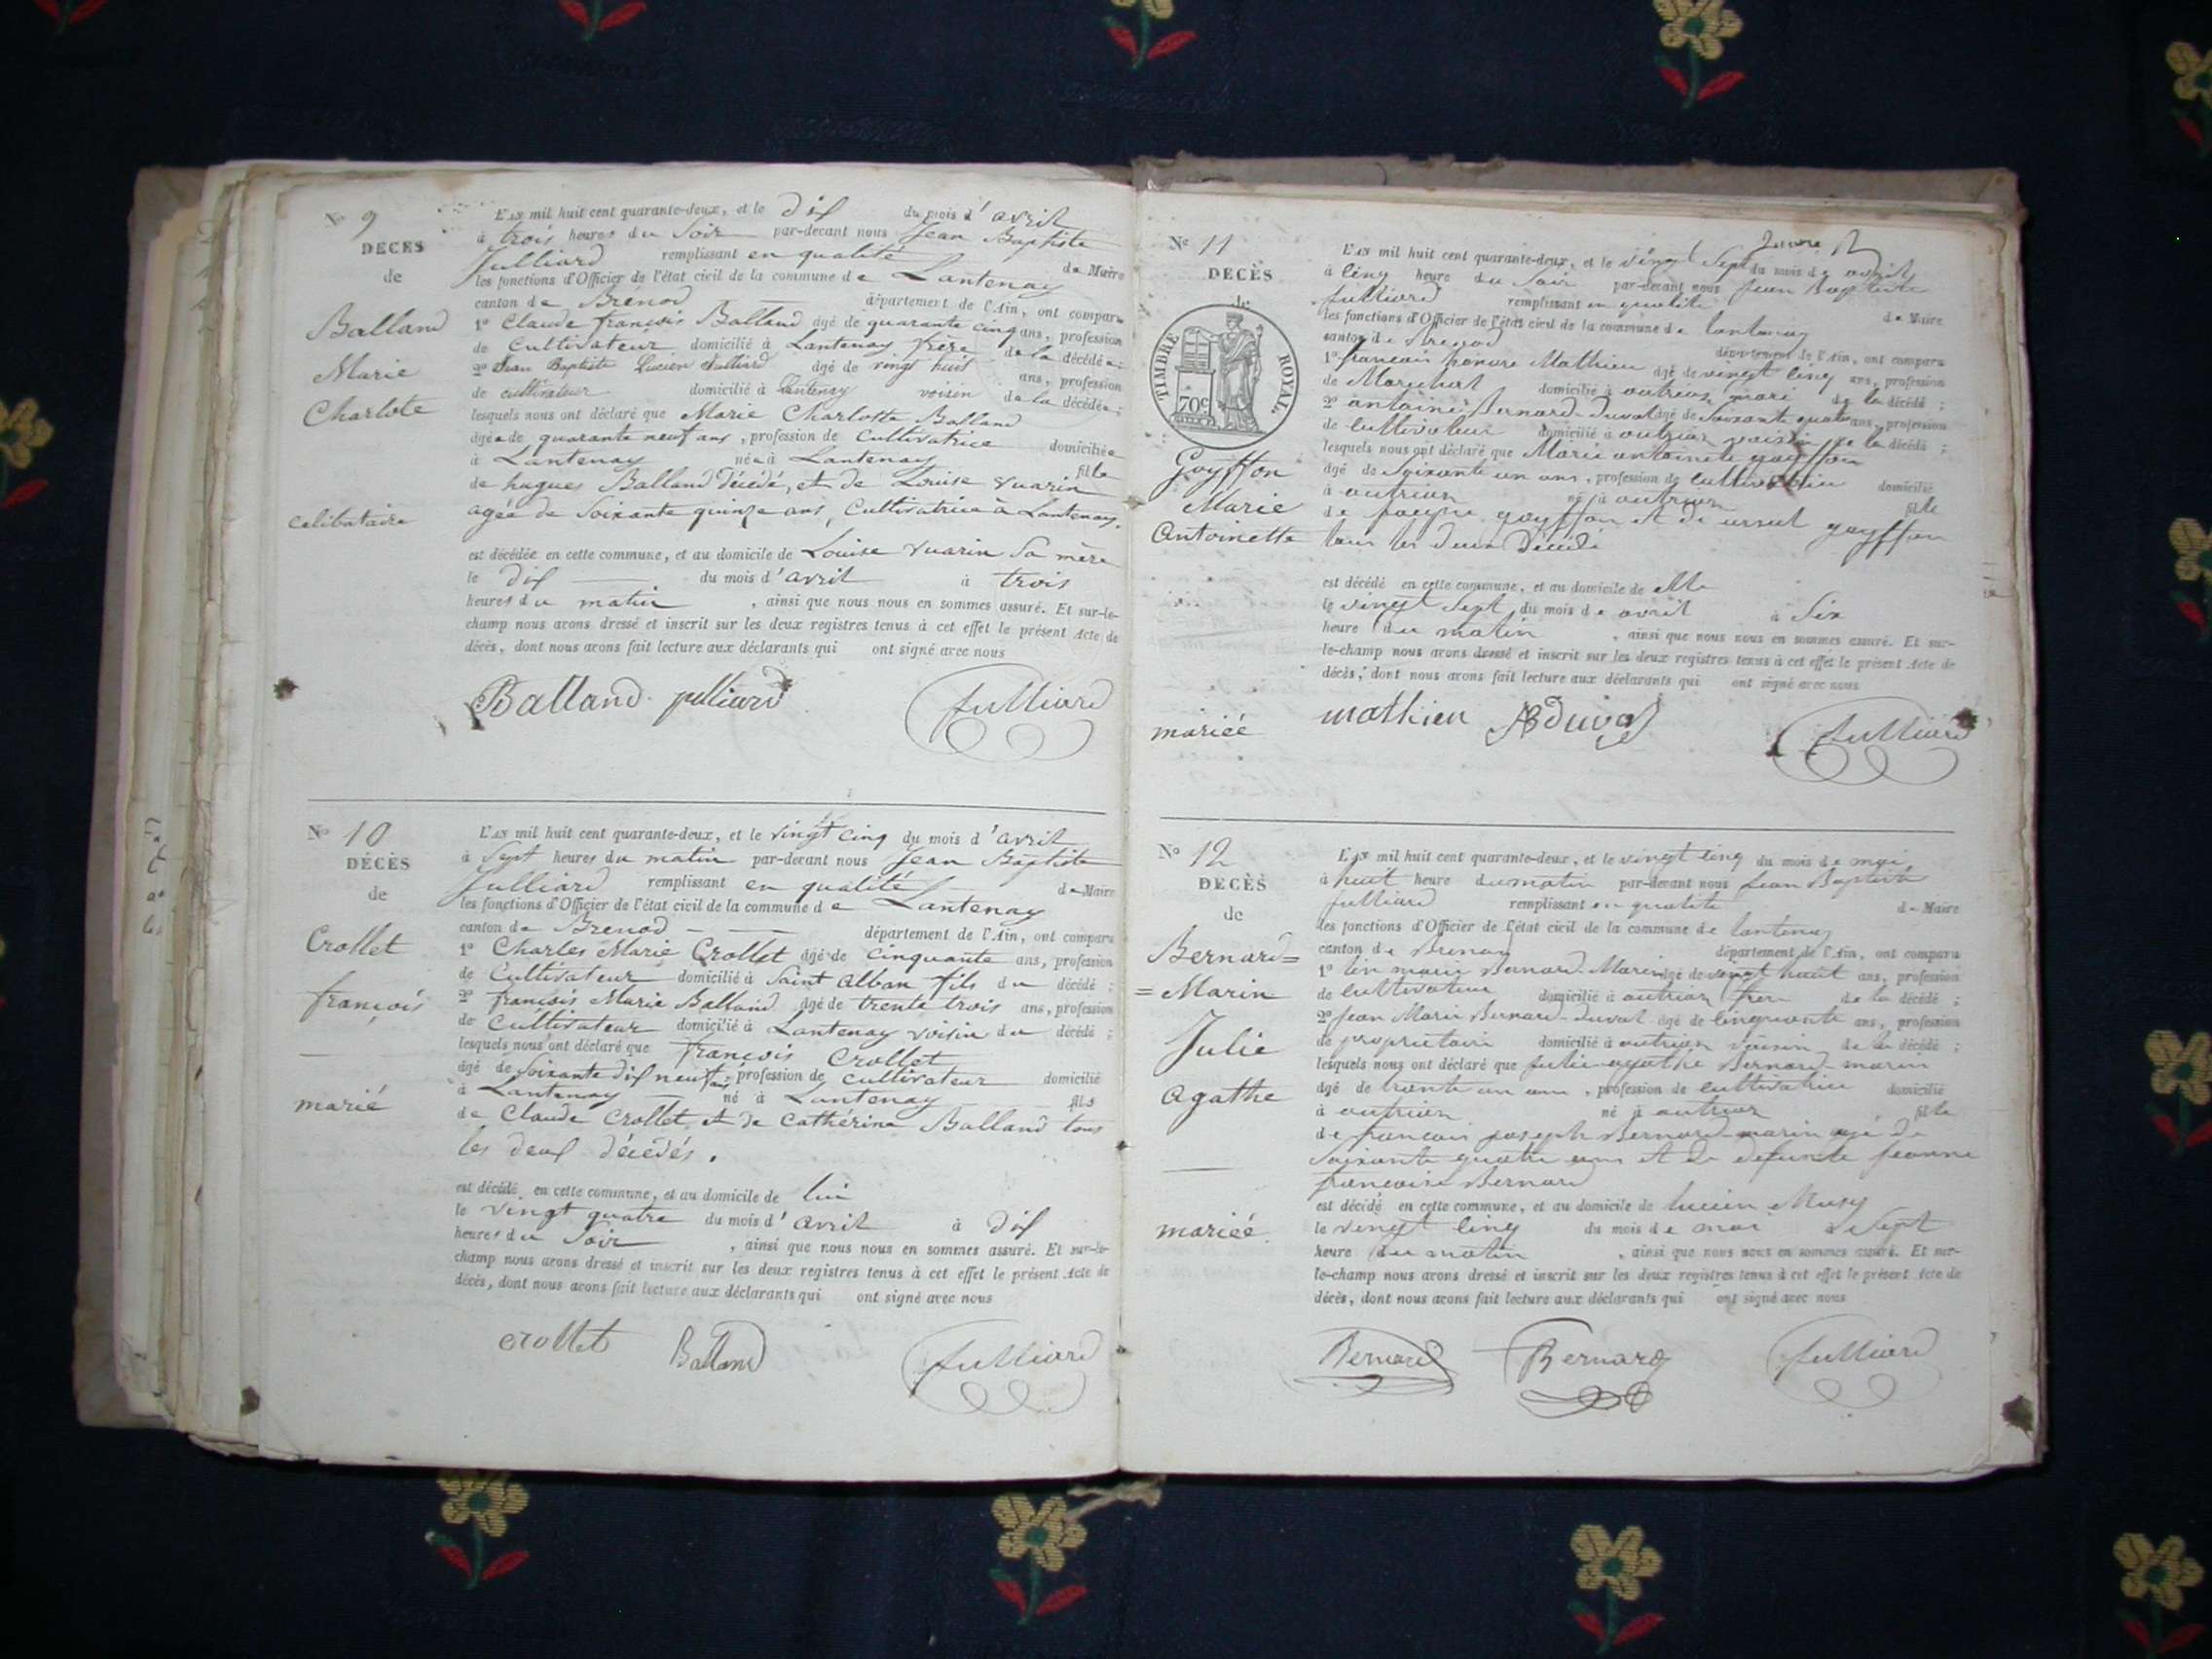 N° 9
DÉCÈS
de
Balland
Marie
Charlote
celibataire
L'AN mil huit cent quarante-deux, et le dix du mois d'avril
à trois heures du Soir par-devant nous Jean Baptiste
Julliard remplissant en qualité de Maire
les fonctions d'Officier de l'état civil de la commune de Lantenay
canton de Brénod département de l'Ain, ont comparu
1° Claude françois Balland âgé de quarante cinq ans, profession
de Cultivateur domicilié à Lantenay frère de la décédée;
2° Jean Baptiste Lucien Julliard âgé de vingt huit ans, profession
de cultivateur domicilié à Lantenay voisin de la décédée;
lesquels nous ont déclaré que Marie Charlotte Balland
âgée de quarante neuf ans, profession de Cultivatrice domiciliée
à Lantenay née à Lantenay fille
de hugues Balland décédé, et de Louise Vuarin
agée de Soixante quinze ans, Cultivatrice à Lantenay,
est décédée en cette commune, et au domicile de Louise Vuarin Sa mère
le dix du mois d'avril à trois
heures du matin, ainsi que nous nous en sommes assuré. Et sur-le-
champ nous avons dressé et inscrit sur les deux registres tenus à cet effet le présent Acte de
décès, dont nous avons fait lecture aux déclarants qui ont signé avec nous
Balland julliard Julliard
N° 10
DÉCÈS
de
Crollet
françois
marié
L'AN mil huit cent quarante-deux, et le vingt cinq du mois d'avril
à Sept heures du matin par-devant nous Jean Baptiste
Julliard remplissant en qualité de Maire
les fonctions d'Officier de l'état civil de la commune de Lantenay
canton de Brenod département de l'Ain, ont comparu
1° Charles Marie Crollet âgé de cinquante ans, profession
de Cultivateur domicilié à Saint Alban fils du décédé;
2° françois Marie Balland âgé de trente trois ans, profession
de Cultivateur domicilié à Lantenay voisin du décédé;
lesquels nous ont déclaré que françois Crollet
âgé de Soixante dix neuf ans, profession de cultivateur domicilié
à Lantenay né à Lantenay fils
de Claude Crollet et de Cathérine Balland tous
les deux décédés.
est décédé en cette commune, et au domicile de lui
le vingt quatre du mois d'avril à dix
heures du Soir, ainsi que nous nous en sommes assuré. Et sur-le-
champ nous avons dressé et inscrit sur les deux registres tenus à cet effet le présent Acte de
décès, dont nous avons fait lecture aux déclarants qui ont signé avec nous
crollet Balland Julliard
N° 11
DÉCÈS
de
TIMBRE ROYAL.
70c
Goyffon
Marie
Antoinette
mariéé
L'AN mil huit cent quarante-deux, et le vingt Sept du mois de avril
à cinq heure du Soir par-devant nous Jean Baptiste
Julliard remplissant en qualité de Maire
les fonctions d'Officier de l'état civil de la commune de lantenay
canton de Brenod département de l'Ain, ont comparu
1° francois honore Mathieu âgé de vingt cinq ans, profession
de Marechal domicilié à outriaz mari de la décédé;
2° antoine Bernard-Duval âgé de Soixante quatre ans, profession
de cultivateur domicilié à outriaz voisin de la décédé;
lesquels nous ont déclaré que Marie antoinete goyffon
âgé de Soixante un ans, profession de cultivatrice domicilié
à outriaz né à outriaz fille
de goyffon et de ursul goyffon
tous les deux Décédé
est décédé en cette commune, et au domicile de elle
le vingt Sept du mois de avril à Six
heure du matin, ainsi que nous nous en sommes assuré. Et sur-
le-champ nous avons dressé et inscrit sur les deux registres tenus à cet effet le présent Acte de
décès, dont nous avons fait lecture aux déclarants qui ont signé avec nous
mathieu ABduval Julliard
N° 12
DÉCÈS
de
Bernard=
=Marin
Julie
Agathe
mariéé
L'AN mil huit cent quarante-deux, et le vingt cinq du mois de mai
à huit heure du matin par-devant nous Jean Baptiste
Julliard remplissant en qualité de Maire
les fonctions d'Officier de l'état civil de la commune de lantenay
canton de Brenod département de l'Ain, ont comparu
1° marie Bernard-Marin âgé de vingt huit ans, profession
de cultivateur domicilié à outriaz frere de la décédé;
2° Jean Marie Bernard-Duval âgé de cinquante ans, profession
de propriétaire domicilié à outriaz voisin de la décédé;
lesquels nous ont déclaré que julie agathe Bernard-marin
âgé de trente un ans, profession de cultivatrice domicilié
à outriaz né à outriaz fille
de francois joseph Bernard-marin agé de
Soixante quatre ans et de defunte jeanne
francoise Bernard
est décédé en cette commune, et au domicile de lucien Musy
le vingt cinq du mois de mai à Sept
heure du matin, ainsi que nous nous en sommes assuré. Et sur-
le-champ nous avons dressé et inscrit sur les deux registres tenus à cet effet le présent Acte de
décès, dont nous avons fait lecture aux déclarants qui ont signé avec nous
Bernard Bernard Julliard